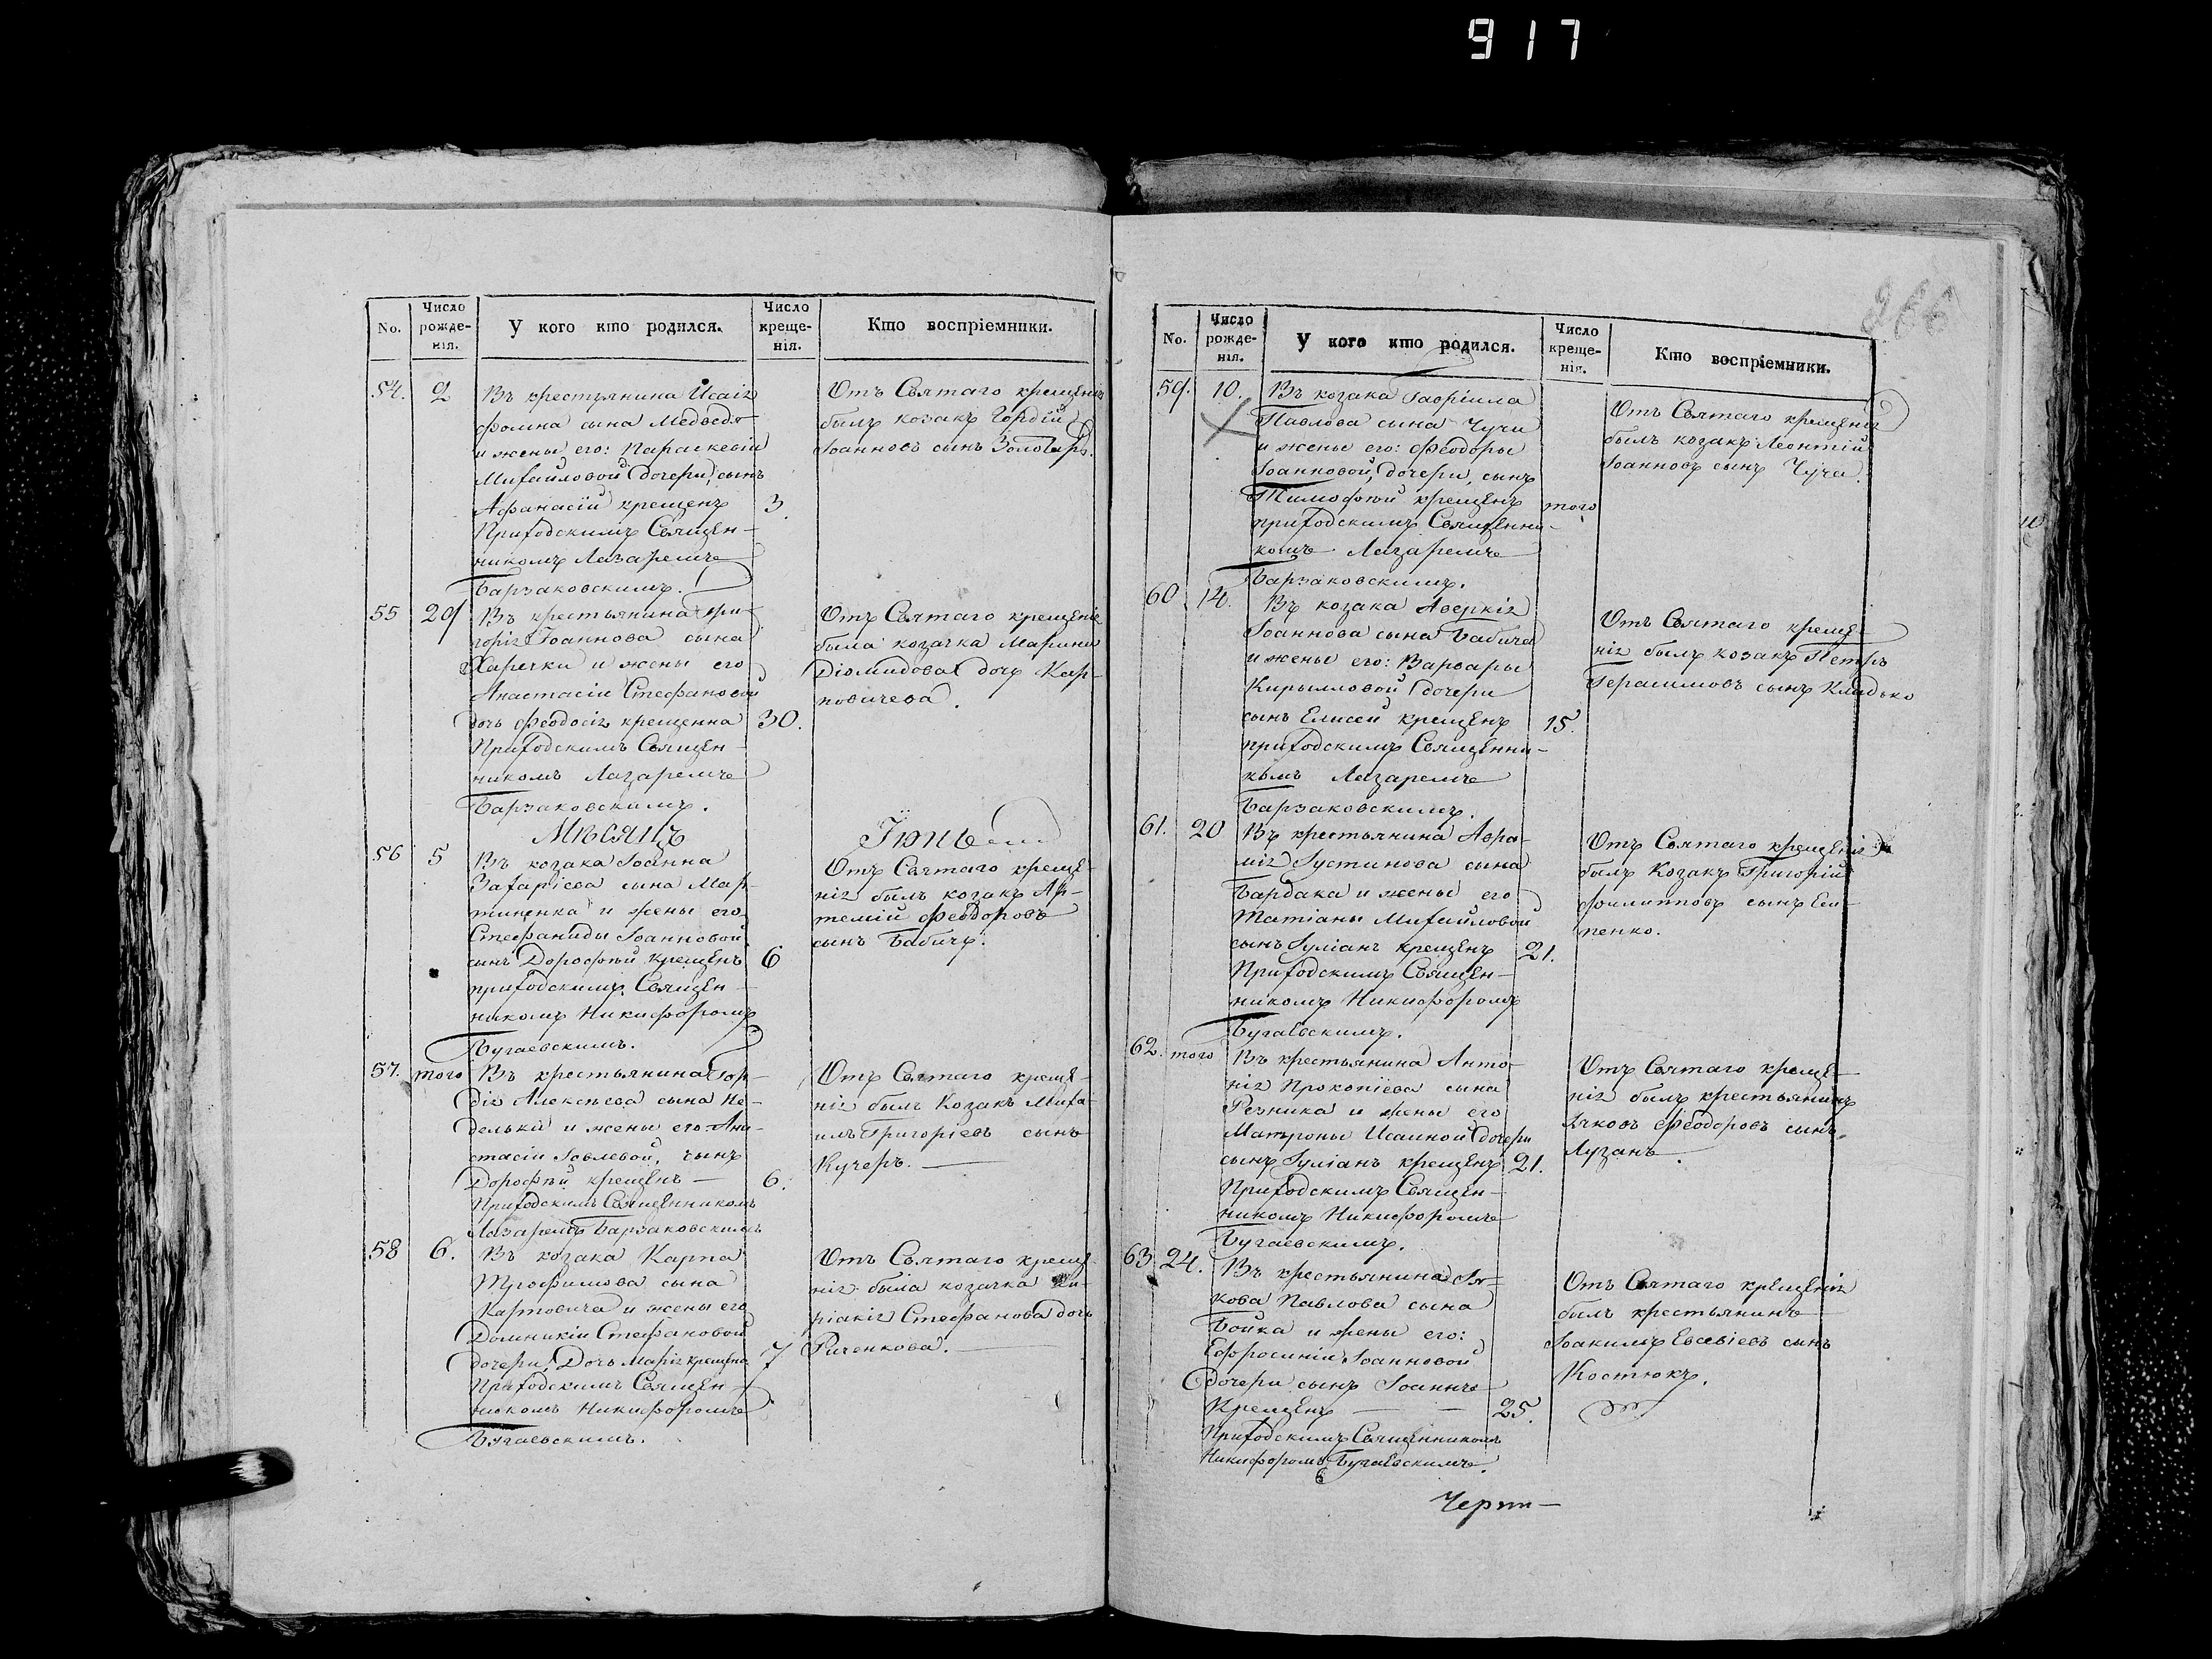 917
266
No.
Число рожденія.
У кого кто родился.
Число крещенія.
Кто воспріемники.
54. 2
Въ крестьянина Исаія
Фомина сына Медведя
и жены его: Параскевіи
Михайловой дочери, сынъ
Афанасій крещенъ 3.
Приходскимъ Священ-
никомъ Лазаремъ
Барзаковскимъ.
Отъ Святаго крещенія
былъ козакъ Гордій
Іоанновъ сынъ
55 29
Въ крестьянина Гри-
горія Іоаннова сына
Харечки и жены его
Анастасіи Стефановой
дочь Феодосія крещенна 30.
Приходскимъ Священ-
никомъ Лазаремъ
Барзаковскимъ.
Отъ Святаго крещенія
была козачка Марина
Діомидова дочь Кар-
повичева.
Мѣсяцъ Іюнь
56 5
Въ козака Іоанна
Захаріева сына Мар-
тиненка и жены его
Стефаниды Іоанновой
сынъ Дорофѣй крещенъ 6
приходскимъ Священ-
никомъ Никифоромъ
Бугаевскимъ.
Отъ Святаго креще-
нія былъ козакъ Ар-
темій Феодоровъ
сынъ Бабичъ.
57. того
Въ крестьянина Гор-
дія Алексѣева сына Не-
дельки и жены его Ана-
стасіи Іовлевой, сынъ
Дорофѣй крещенъ — 6.
Приходскимъ Священникомъ
Лазаремъ Барзаковскимъ
Отъ Святаго креще-
нія былъ Козакъ Миха-
илъ Григоріевъ сынъ
Кучеръ. —
58 6.
Въ козака Карпа
Трофимова сына
Карповича и жены его
Домникіи Стефановой
дочери, Дочь Марія крещена 7
Приходскимъ Священ-
никомъ Никифоромъ
Бугаевскимъ.
Отъ Святаго креще-
нія была козачка Ки-
ріакія Стефанова дочь
Риченкова. —
No.
Число рожденія.
У кого кто родился.
Число крещенія.
Кто воспріемники.
59. 10.
Въ козака Гавріила
Павлова сына Чучи
и жены его: Феодоры
Іоанновой, дочери, сынъ
Тимофѣй крещенъ того
приходскимъ Священни-
комъ Лазаремъ
Барзаковскимъ.
Отъ Святаго крещенія
былъ козакъ Леонтій
Іоанновъ сынъ Чуча.
60 14.
Въ козака Аверкія
Іоаннова сына Бабича
и жены его: Варвары
Кирылловой дочери
сынъ Елисей крещенъ 15.
приходскимъ Священни-
комъ Лазаремъ
Барзаковскимъ.
Отъ Святаго креще-
нія былъ козакъ Петръ
Герасимовъ сынъ Кладько
61. 20
Въ крестьянина Авра-
мія Іустинова сына
Бардака и жены его
Татіаны Михайловой
сынъ Іуліанъ крещенъ 21.
Приходскимъ Священ-
никомъ Никифоромъ
Бугаевскимъ.
Отъ Святаго крещенія
былъ Козакъ Григорій
Филипповъ сынъ Еси-
пенко.
62. того
Въ крестьянина Анто-
нія Прокопіева сына
Резника и жены его
Матроны Исаиной дочери
сынъ Іуліанъ крещенъ 21.
Приходскимъ Священ-
никомъ Никифоромъ
Бугаевскимъ.
Отъ Святаго креще-
нія былъ крестьянинъ
Іяковъ Феодоровъ сынъ
Лузанъ.
63 24.
Въ крестьянина Іа-
кова Павлова сына
Бойка и жены его:
Ефросиніи Іоанновой
дочери сынъ Іоаннъ
Крещенъ — — 25.
Приходскимъ Священникомъ
Никифоромъ Бугаевскимъ.
Отъ Святаго крещенія
былъ крестьянинъ
Іоакимъ Евсевіевъ сынъ
Костюкъ.